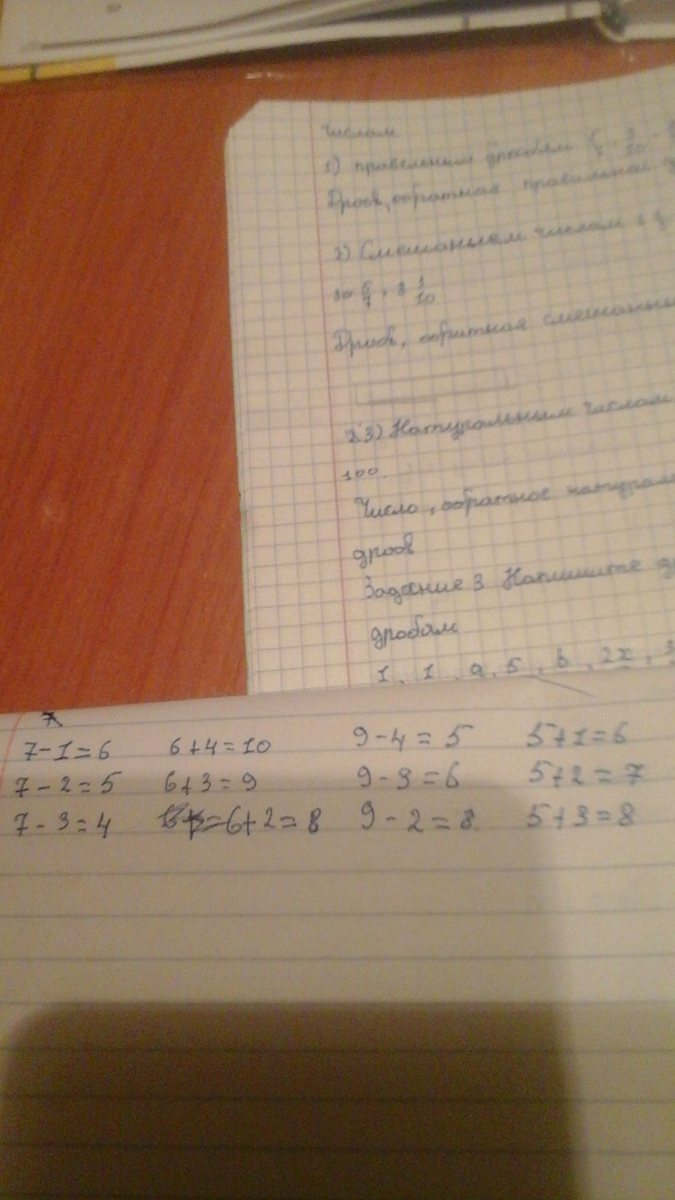 числам
1) правельным дробям
Дробь, обратная правильной
2) Смешаным числам
10 5/7, 8 1/10
Дробь, обратная смешанным
2.3) Натуральным числам
100.
Число, обратное натураль
дробь
Задание 3 Напишите
дробям
1, 1, a, 5, b, 2x, 3
7
7-1=6 6+4=10 9-4=5 5+1=6
7-2=5 6+3=9 9-3=6 5+2=7
7-3=4 6+2=8 9-2=8 5+3=8